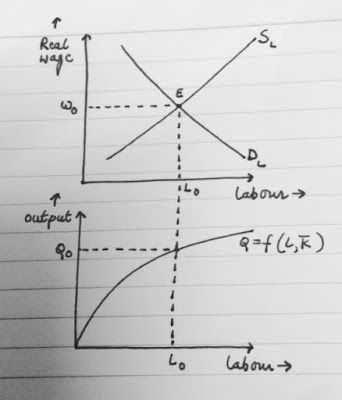 ↑
Real
wage
S_L
E
ω₀
D_L
L₀
labour →
↑
output
Q₀
Q = f(L, K̅)
L₀
labour →